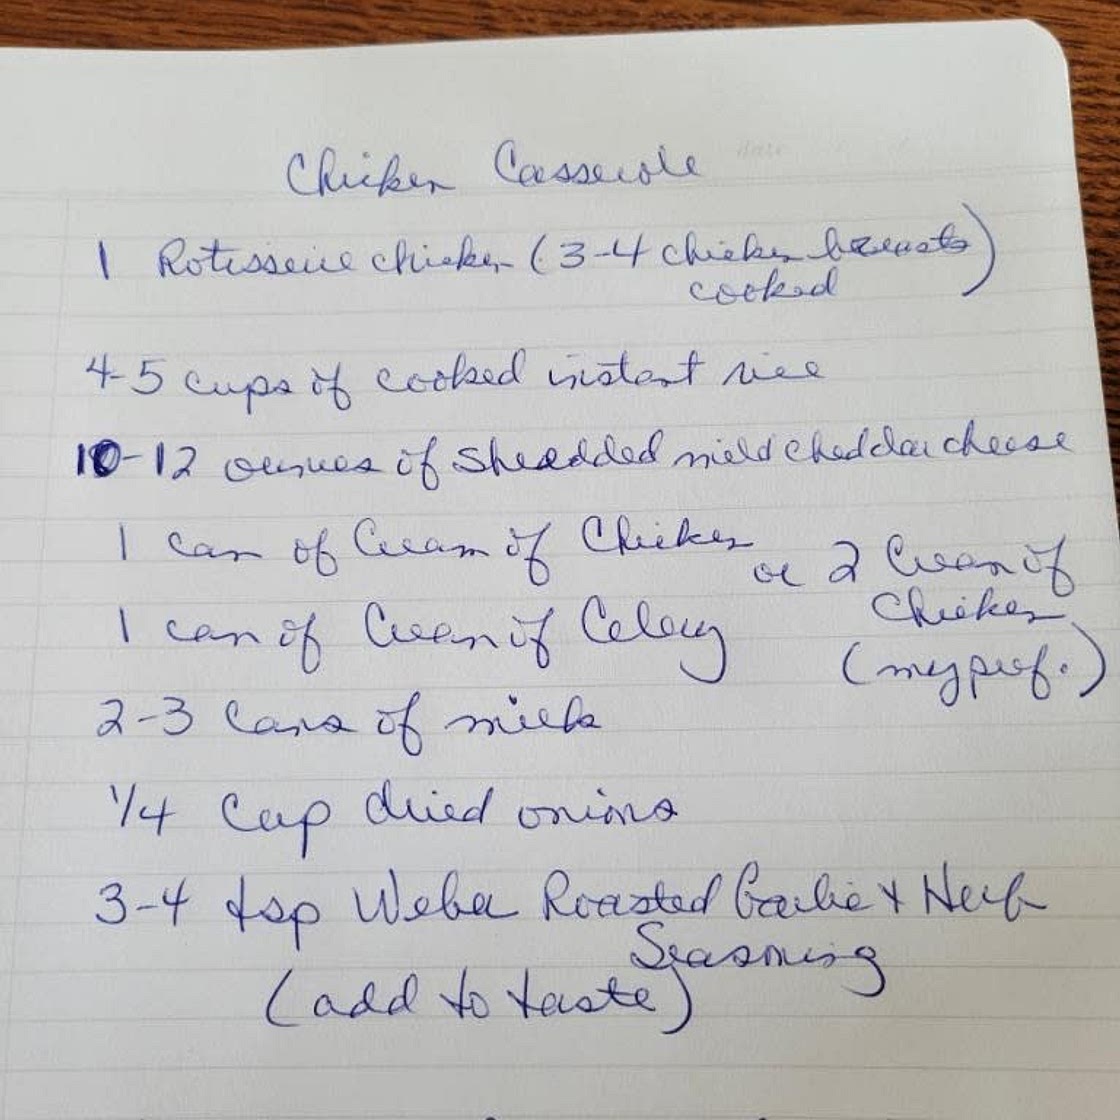 Chicken Casserole
1 Rotisserie chicken (3-4 chicken breasts
cooked)
4-5 cups of cooked instant rice
10-12 ounces of shredded mild cheddar cheese
1 can of Cream of Chicken
or 2 Cream of
Chicken
1 can of Cream of Celery
(my pref.)
2-3 Cans of milk
1/4 Cup dried onions
3-4 tsp Weber Roasted Garlic & Herb
Seasoning
(add to taste)